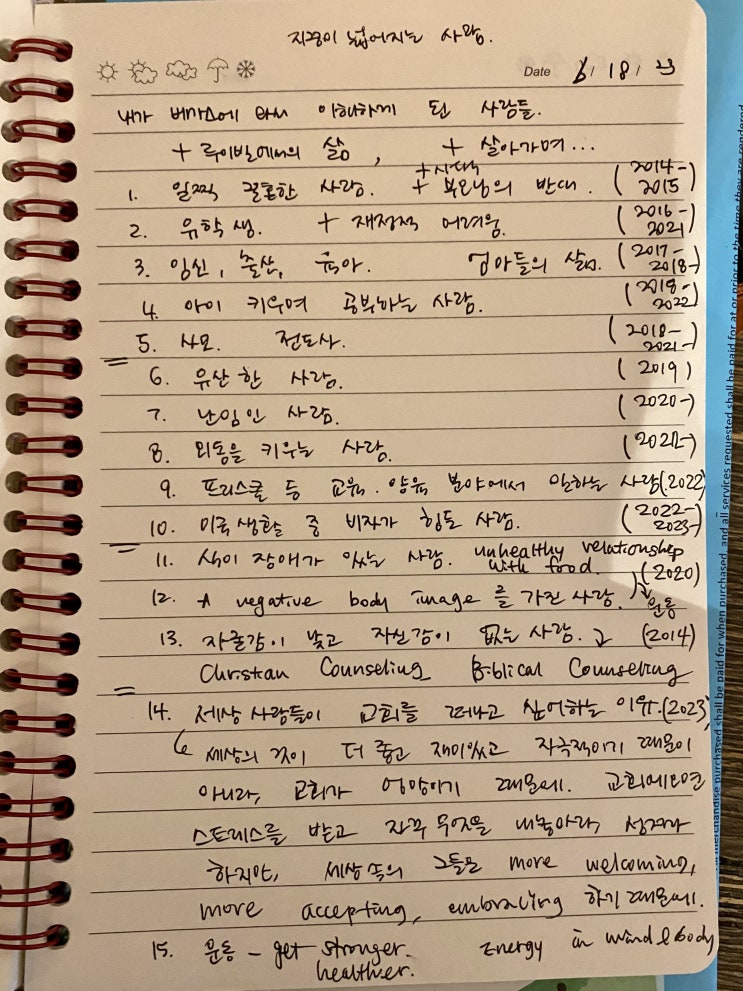 지경이 넓어지는 사람.
Date 6/ 18/ 23
내가 베가스에 와서 이해하게 된 사람들.
+ 루이빌에서의 삶, + 살아가며...
1. 일찍 결혼한 사람. + 시댁 + 부모님의 반대. (2014-2015)
2. 유학생. + 재정적 어려움. (2016-2021)
3. 임신, 출산, 육아. 엄마들의 삶. (2017-2018-)
4. 아이 키우며 공부하는 사람. (2018-2022)
5. 사모. 전도사. (2018-2021-)
6. 유산 한 사람. (2019)
7. 난임인 사람. (2020-)
8. 외동을 키우는 사람. (2022-)
9. 프리스쿨 등 교육. 양육 분야에서 일하는 사람 (2022)
10. 미국 생활 중 비자가 힘든 사람. (2022-2023-)
11. 식이 장애가 있는 사람. unhealthy relationship with food. (2020)
12. A negative body image 를 가진 사람. 운동
13. 자존감이 낮고 자신감이 없는 사람. (2014)
Christian Counseling Biblical Counseling
14. 세상 사람들이 교회를 떠나고 싶어하는 이유. (2023)
세상의 것이 더 좋고 재미있고 자극적이기 때문이
아니라, 교회가 엉망이기 때문에. 교회에 오면
스트레스를 받고 자꾸 무엇을 내놓아라,
하지만, 세상 속의 그들은 more welcoming,
more accepting, embracing 하기 때문에.
15. 운동 - get stronger. healthier. Energy in mind & body
merchandise purchased shall be paid for when purchased, and all services requested shall be paid for at or prior to the time they are rendered